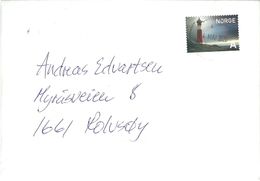 NORGE
A
Andreas Edvartsen
Myråsveien 8
1661 Rolvsøy